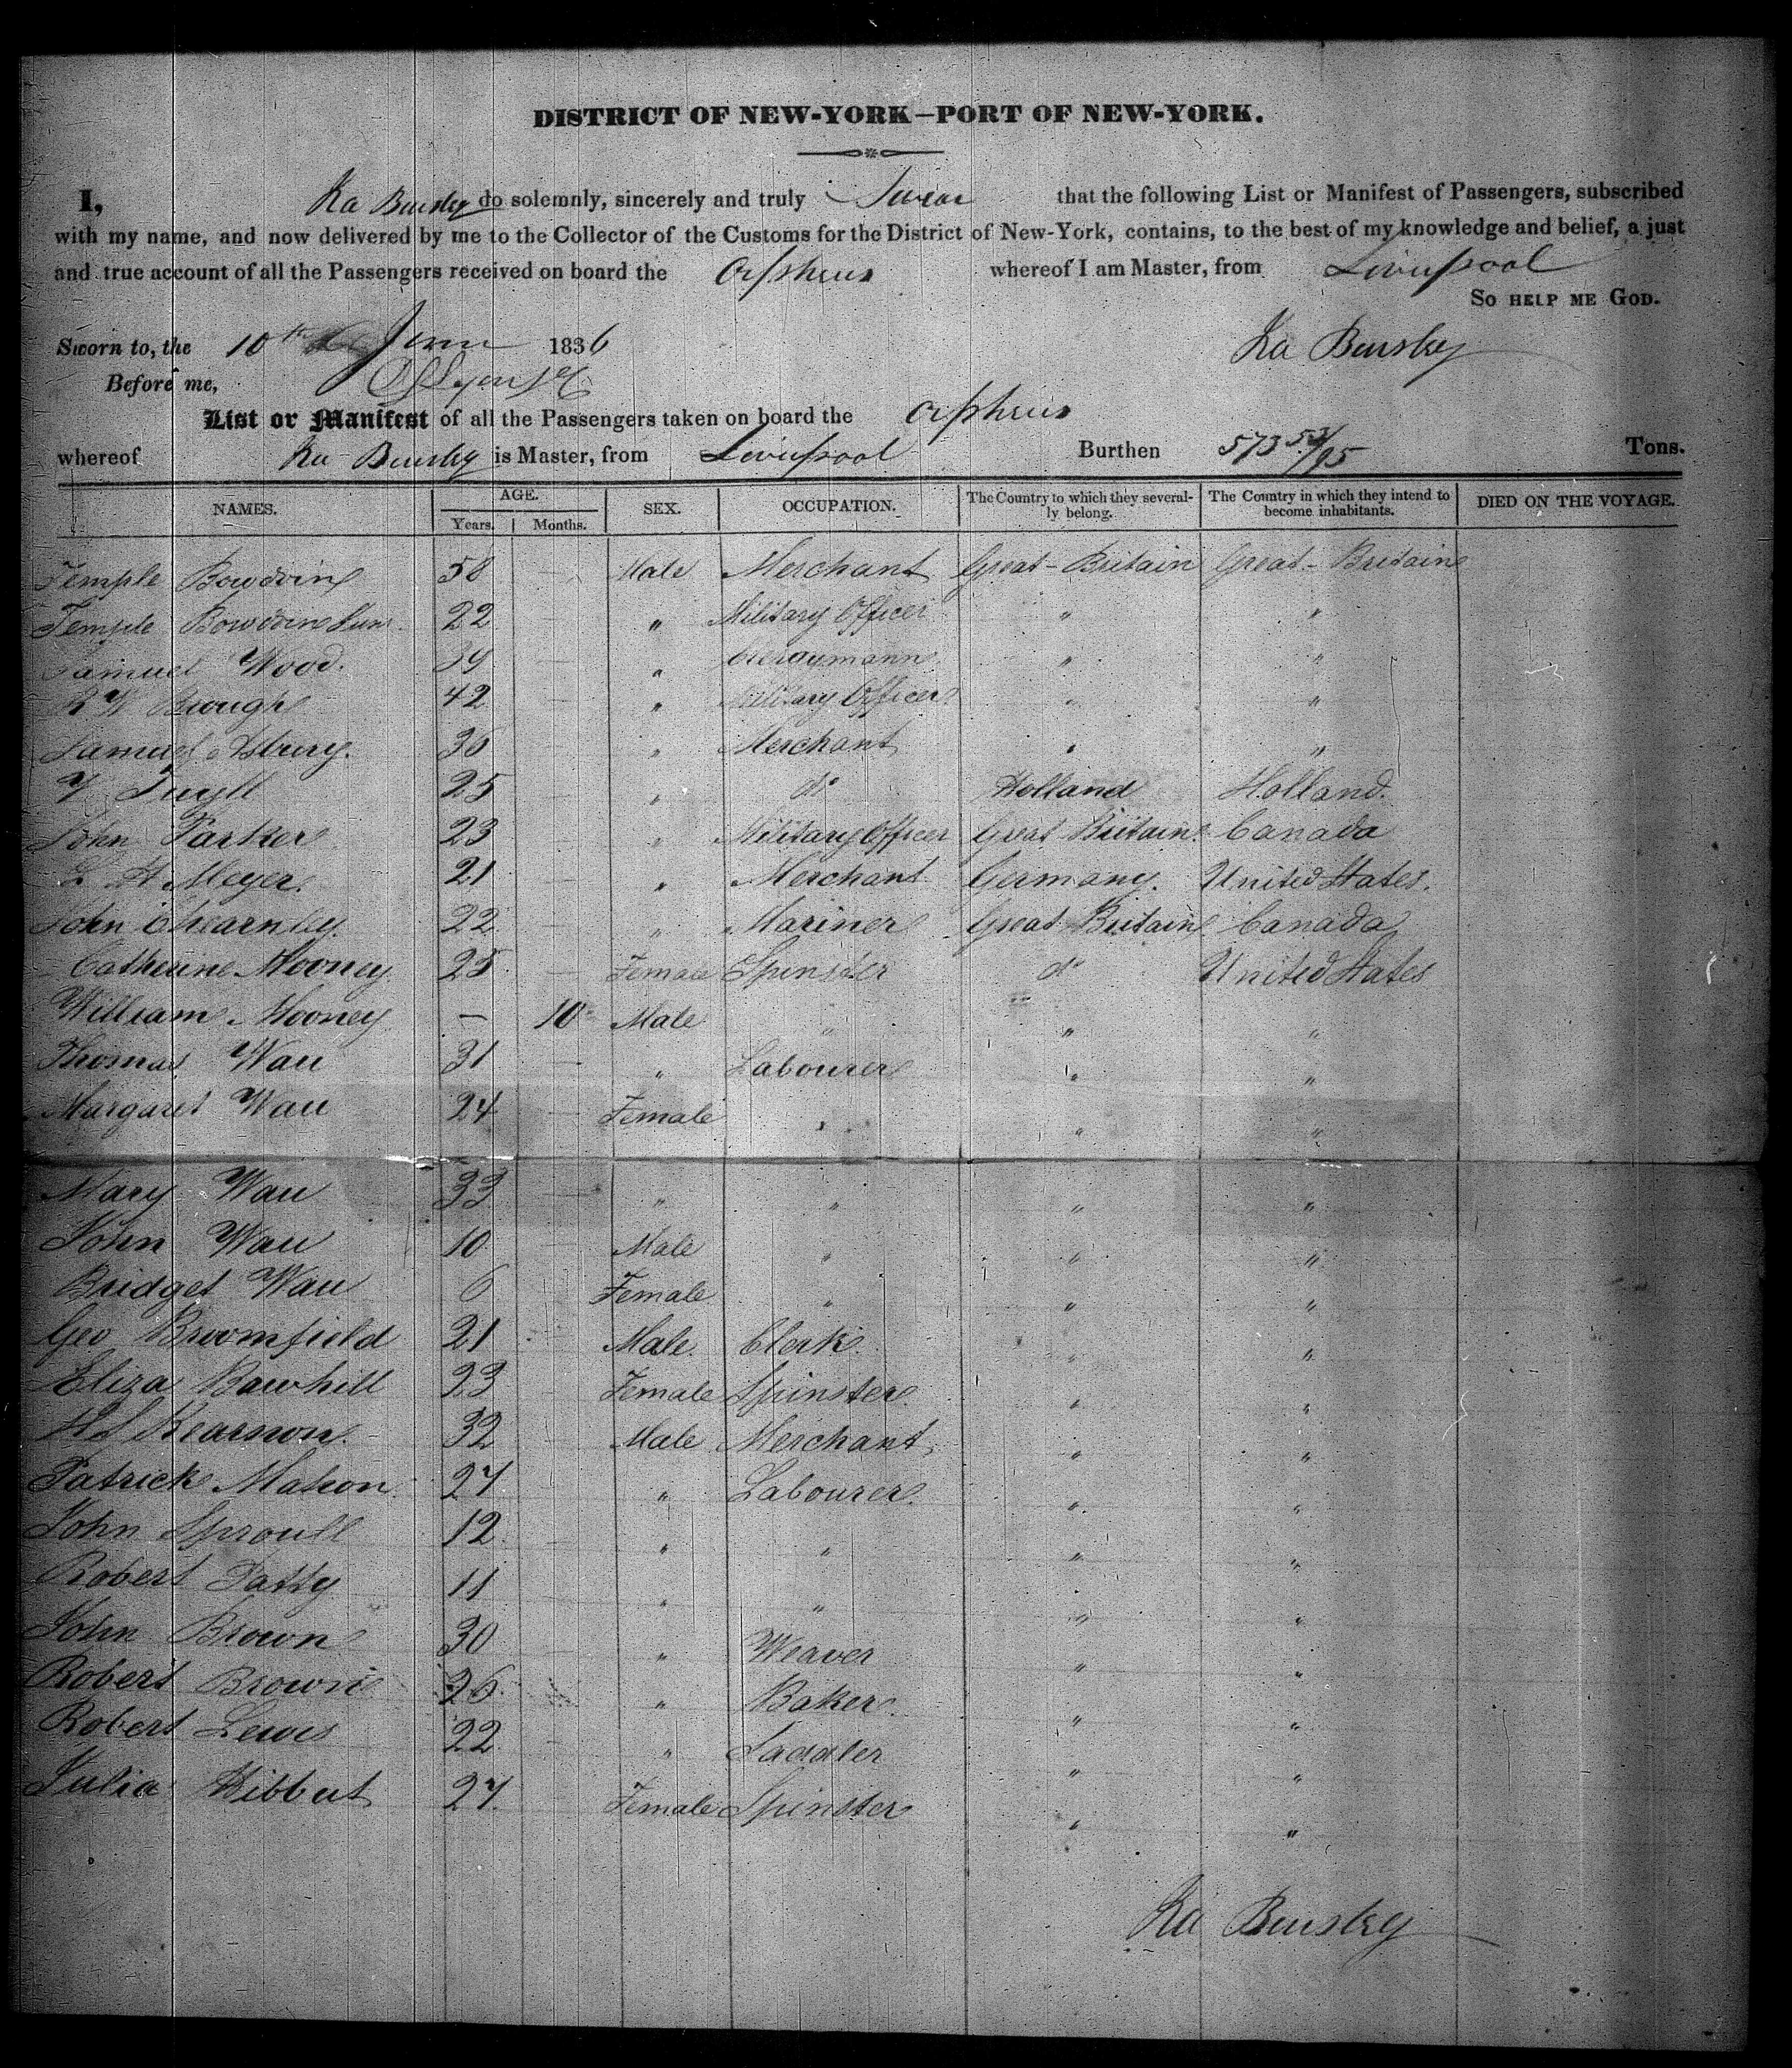 DISTRICT OF NEW-YORK—PORT OF NEW-YORK.
I, Ira Bursley do solemnly, sincerely and truly Swear that the following List or Manifest of Passengers, subscribed
with my name, and now delivered by me to the Collector of the Customs for the District of New-York, contains, to the best of my knowledge and belief, a just
and true account of all the Passengers received on board the Orpheus whereof I am Master, from Liverpool
SO HELP ME GOD.
Sworn to, the 10th June 1836 Ira Bursley
Before me,
List or Manifest of all the Passengers taken on board the Orpheus
whereof Ira Bursley is Master, from Liverpool Burthen 573 53/95 Tons.
NAMES. AGE. Years. Months. SEX. OCCUPATION. The Country to which they severally belong. The Country in which they intend to become inhabitants. DIED ON THE VOYAGE.
Temple Bowdoin 58 — Male Merchant Great-Britain Great-Britain
Temple Bowdoin Jun 22 — " Military Officer " "
Samuel Wood. 39 — " Clergymann " "
R W Brough 42 — " Military Officer " "
Samuel Asbury. 36 " Merchant " "
Tuyll 25 " do Holland Holland.
John Parker 23 " Military Officer Great Britain Canada
L H Meyer. 21 " Merchant Germany. United States.
John Chearnley. 22 — " Mariner Great Britain Canada
Catherine Mooney 25 — Female Spinster do United States
William Mooney — 10 Male " " "
Thomas Wau 31 — " Labourer " "
Margaret Wau 24 — Female " " "
Mary Wau 33 — " " " "
John Wau 10 — Male " " "
Bridget Wau 6 Female " " "
Geo Broomfield 21 Male Clerk " "
Eliza Bawhill 23 Female Spinster " "
Kearnon. 32 Male Merchant " "
Patrick Mahon 27 " Labourer " "
John Sproull 12 " " " "
Robert Patty 11 " " " "
John Brown 30 " Weaver " "
Robert Brown 26 " Baker " "
Robert Lewis 22 " Saddler " "
Julia Hibbut 27 Female Spinster " "
Ira Bursley